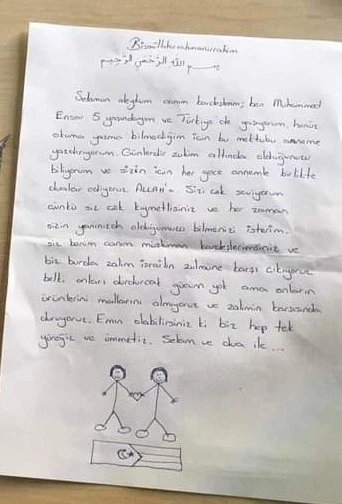 Bismillahirrahmanirrahim
بسم الله الرَّحْمٰنِ الرَّحِيمِ
Selamun aleykum canım kardeslerim; ben Muhammed
Ensar 5 yasındayım ve Türkiye de yasıyorum. henüz
okuma yazma bilmediğim için bu mektubu anneme
yazdırıyorum. Günlerdir zulüm altında olduğunuzu
biliyorum ve sizin için her gece annemle birlikte
dualar ediyoruz ALLAH'a. Sizi çok seviyorum
çünkü siz çok kıymetlisiniz ve her zaman
sizin yanınızda olduğumuzu bilmenizi isterim.
siz benim canım müslüman kardeşlerimsiniz ve
biz burda zalim israilin zulmüne karsı çıkıyoruz
belki onları durduracak gücüm yok ama onların
ürünlerini mallarını almıyoruz ve zalimin karsısında
duruyoruz. Emin olabilirsiniz ki biz hep tek
yüreğiz ve ümmetiz. Selam ve dua ile ...